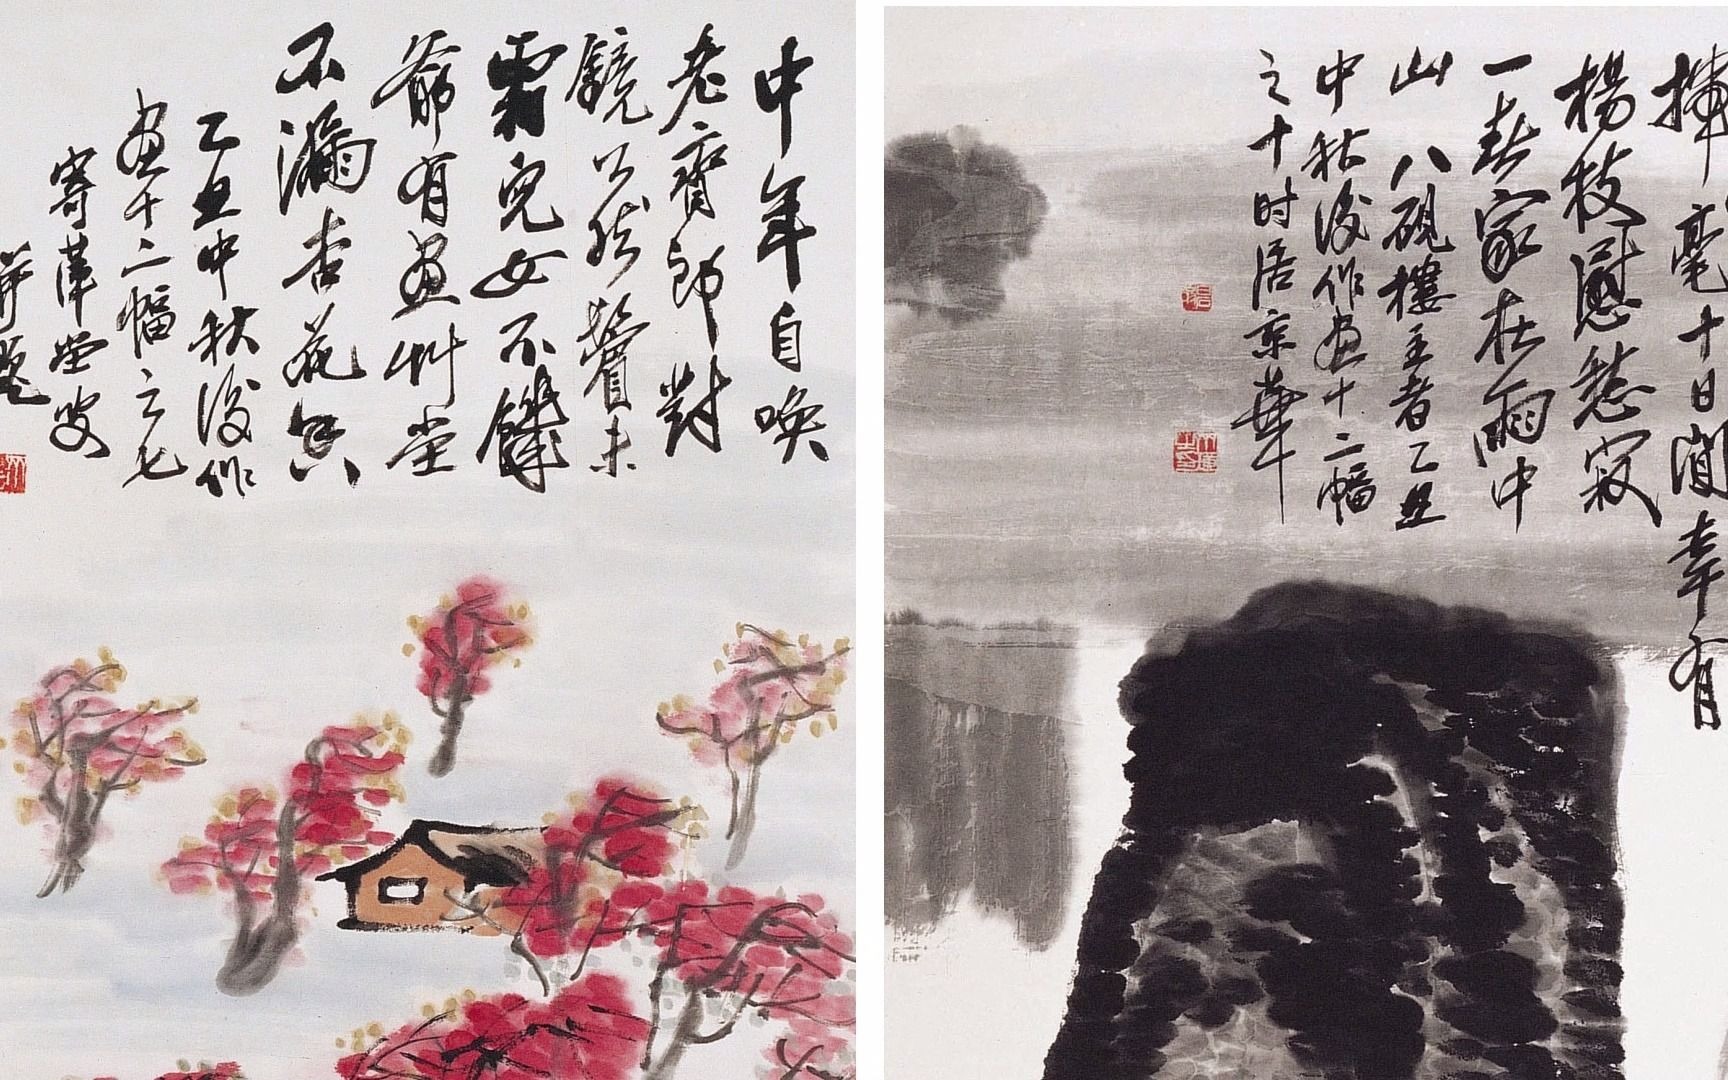 中年自喚
老齊郎對
鏡公然鬢未
霜兒女不饑
爺有畫艸堂
不漏杏花香
乙丑中秋後作
畫十二幅之七
寄萍堂叟
并題
揮毫十日閒幸有
楊枝慰愁寂
一春家在雨中
山八硯樓主者乙丑
中秋後作畫十二幅
之十時居京華